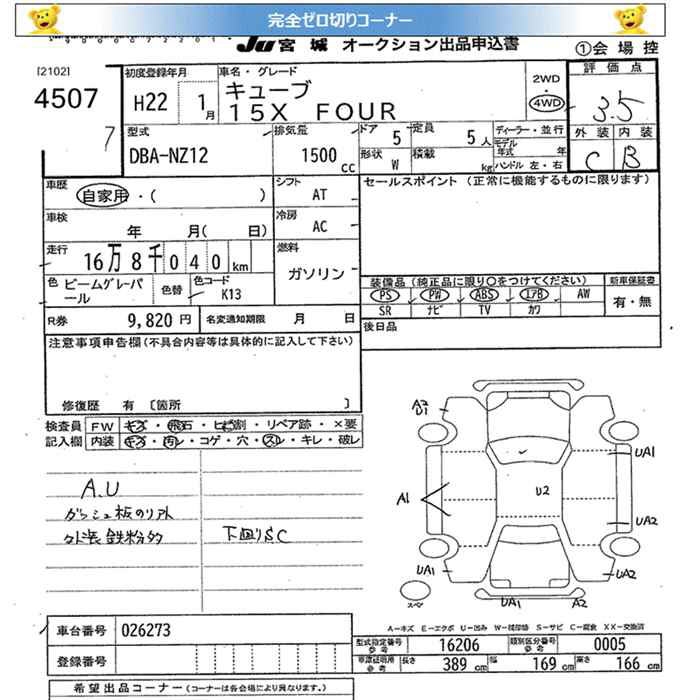 完全ゼロ切りコーナー
JU宮城 オークション出品申込書
①会場控
[2102]
4507
7
初度登録年月
H22 1月
車名・グレード
キューブ
15X FOUR
2WD
・
4WD
評価点
3.5
外装 内装
C B
型式
DBA-NZ12
排気量
1500 cc
ドア 5
定員 5人
形状 W
積載 kg
ディーラー・並行
モデル年式 年
ハンドル 左・右
車歴
自家用・( )
シフト
AT
車検
年 月( 日)
冷房
AC
走行
16万8千040km
燃料
ガソリン
色 ビームグレーパール
色替
色コード
K13
R券 9,820円
名変通知期限 月 日
セールスポイント (正常に機能するものに限ります)
装備品(純正品に限り○をつけてください)
PS PW ABS エアB AW
SR ナビ TV カワ
新車保証書
有・無
後日品
注意事項申告欄(不具合内容等は具体的に記入して下さい)
修復歴 有 〔箇所 〕
検査員記入欄
FW キズ・飛石・ヒビ割・リペア跡・×要
内装 キズ・汚レ・コゲ・穴・スレ・キレ・破レ
A.U
ダッシュ板のリアト
外装鉄粉多
下回りSC
A2
U1
A1
U2
UA1
UA2
UA1
UA2
UA1
A2
スペア
A−キズ E−エクボ U−凹み W−補修跡 S−サビ C−腐食 XX−交換済
車台番号 026273
登録番号
型式指定番号 参考 16206
類別区分番号 参考 0005
車庫証明用参考 長さ 389cm 幅 169cm 高さ 166cm
希望出品コーナー(コーナーは各会場により異なります。)